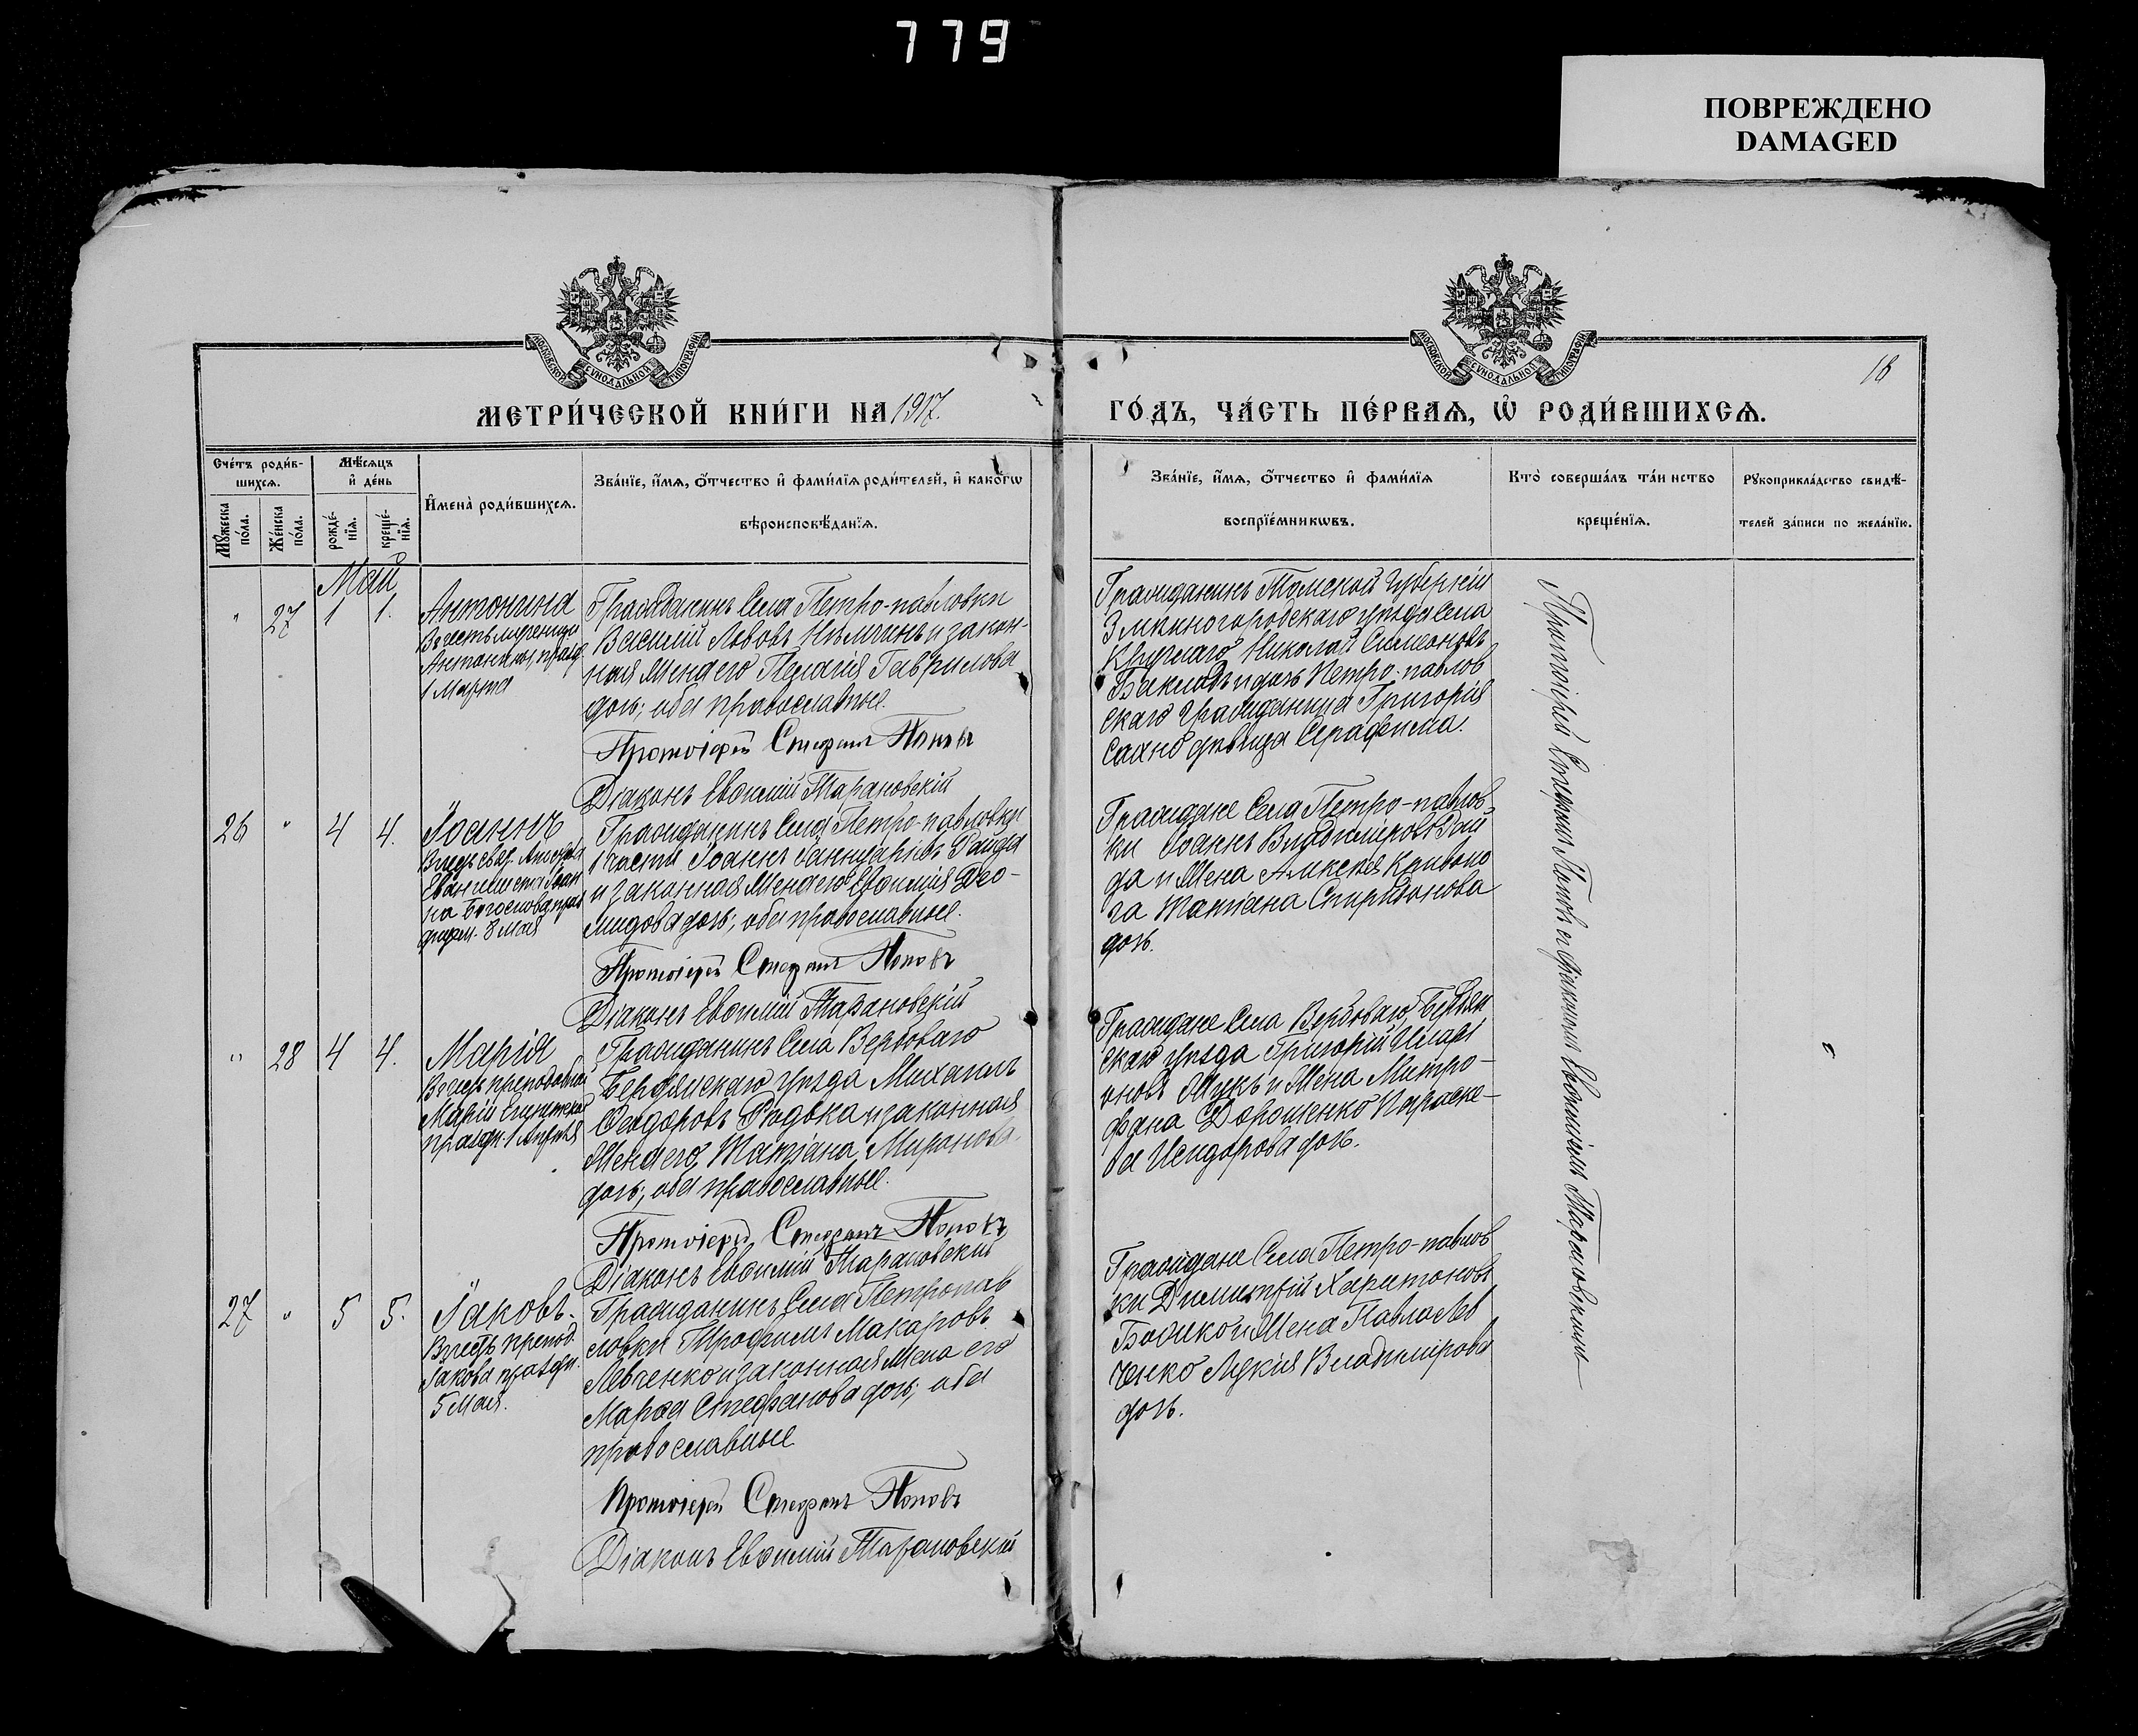 779
ПОВРЕЖДЕНО
DAMAGED
МОСКОВСКОЙ СѴНОДАЛЬНОЙ ТИПОГРАФІИ
МОСКОВСКОЙ СѴНОДАЛЬНОЙ ТИПОГРАФІИ
18
МЕТРИ́ЧЕСКОЙ КНИ́ГИ НА 1917.
ГО́ДЪ, ЧА́СТЬ ПЕ́РВАѦ, Ѡ҆ РОДИ́ВШИХСѦ.
Сче́тъ роди́в-
шихсѧ.
Мꙋ́жеска по́ла.
Же́нска по́ла.
Мѣ́сѧцъ
и҆ де́нь
рожде́-
нїѧ.
креще́-
нїѧ.
И҆мена̀ роди́вшихсѧ.
Зва́нїе, и҆́мѧ, ѻ҆́тчество и҆ фами́лїѧ роди́телей, и҆ како́гѡ
вѣроисповѣ́данїѧ.
Зва́нїе, и҆́мѧ, ѻ҆́тчество и҆ фами́лїѧ
воспрїе́мникѡвъ.
Кто̀ соверша́лъ та́инство
креще́нїѧ.
Рꙋкоприкла́дство свидѣ́-
телей за́писи по жела́нїю.
Май
" 27 1 1.
Антонина
Въ честь мученицы
Антонины, празд.
1 Марта
Гражданинъ Села Петро-павловки
Василій Львовъ и закон-
ная жена его Пелагія Гаврилова
дочь; оба православные.
Протоіерей Стефанъ Поповъ
Діаконъ Евѳимій Тарановскій
Гражданинъ Томской губерніи
Змѣиногородскаго уѣзда села
Круглаго Николай Симеоновъ
и дочь Петро-павлов
скаго гражданина Григорія
Сахно дѣвица Серафима.
26 " 4 4.
Іоаннъ
Въ честь Апостола
Евангелиста Іоан
на Богослова
8 Мая
Гражданинъ Села Петро-павловки
1 части Іоаннъ Іаннуаріевъ Гайда
и законная жена его Евѳимія Део-
мидова дочь; оба православные.
Протоіерей Стефанъ Поповъ
Діаконъ Евѳимій Тарановскій
Граждане Села Петро-павлов-
ки Іоаннъ Владиміровъ Гай
да и жена Алексѣя Криводо
Татіана Спиридонова
дочь.
" 28 4 4.
Марія
Въ честь преподобной
Маріи Египетской
праздн. 1 Апрѣля
Гражданинъ Села Вербоваго
Бердянскаго уѣзда Михаилъ
Ѳеодоровъ Рядька и законная
жена его, Татіана Миронова
дочь; оба православные.
Протоіерей Стефанъ Поповъ
Діаконъ Евѳимій Тарановскій
Граждане Села Вербоваго, Бердян
скаго уѣзда Григорій Илларі
оновъ и жена Митро-
фана Дорошенко Параске-
ва Исидорова дочь.
27 " 5 5.
Іаковъ.
Въ честь препод.
Іакова праздн.
5 Мая.
Гражданинъ Села Петропав
ловки Трофимъ Макаровъ
Левченко и законная жена его
Марѳа Стефанова дочь; оба
православные
Протоіерей Стефанъ Поповъ
Діаконъ Евѳимій Тарановскій
Граждане Села Петро-павлов
ки Димитрій Харитоновъ
и жена Павла Лев
ченко Лукія Владимірова
дочь.
Протоіерей Стефанъ Поповъ съ діакономъ Евѳиміемъ Тарановскимъ